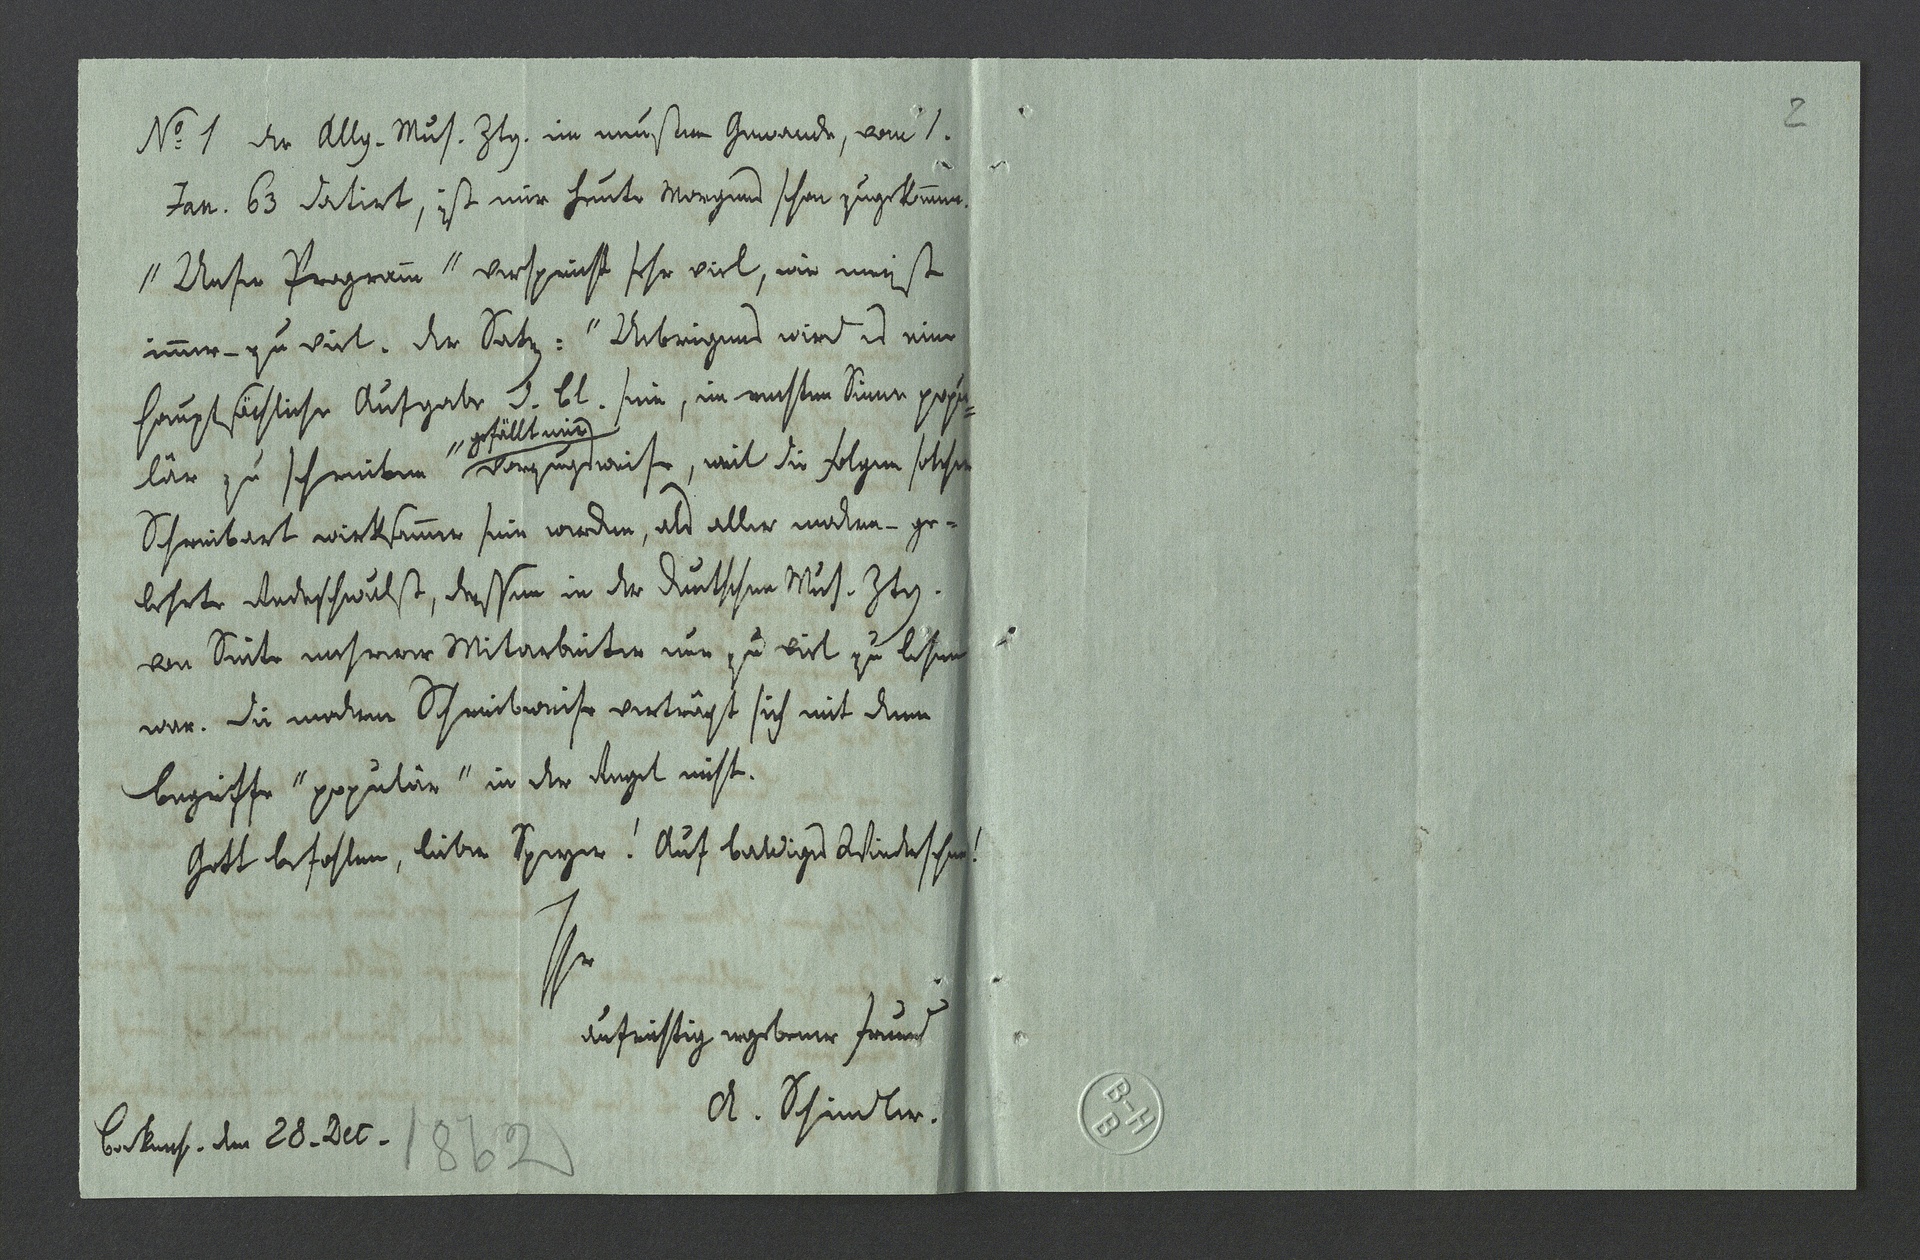 No. 1 der Allg. Mus. Ztg. im neusten Gewande, vom 1.
Jan. 63 datirt, ist mir heute Morgens schon zugekom̄en.
"Unser Program̄" verspricht sehr viel, wie meist
im̄er – zu viel. Der Satz: "Uebrigens wird es eine
hauptsächliche Aufgabe d. Bl. sein, im rechten Sinne popu=
lär zu schreiben" gefällt mir
vorzugsweise, weil die Folgen solcher
Schreibart wirksam̄er sein werden, als aller modern-ge-
lehrte Redeschwulst, dessen in der Deutschen Mus. Ztg.
von Seite mehrerer Mitarbeiter nur zu viel zu lesen
war. Die moderne Schreibweise verträgt sich mit dem
Begriffe "populär" in der Regel nicht.
Gott befohlen, lieber Speyer! Auf baldiges Wiedersehen!
Ihr
aufrichtig ergebener Freund
A. Schindler.
Bockenh. den 28. Dec. 1862
2
B-H
B